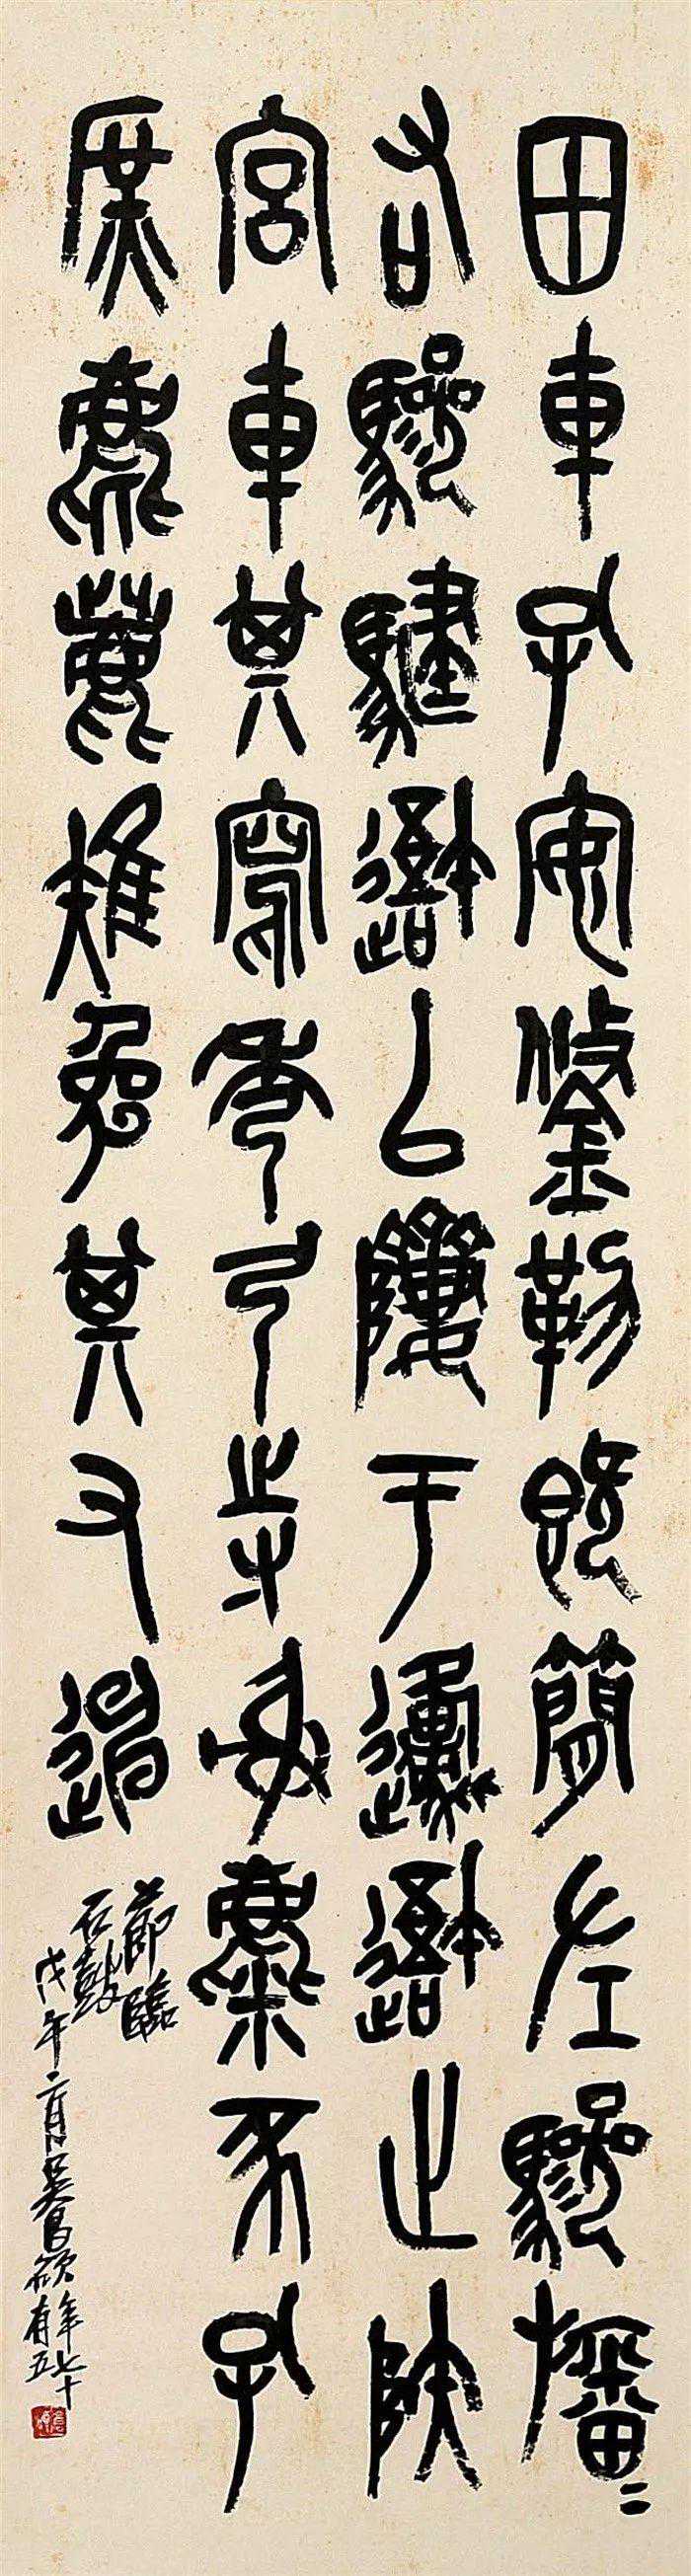 田車孔安鋚勒既簡左驂旛〻
右驂騝𨖍以隮于邍𨖍止陜
宮車其寫秀弓寺射麋豕孔
庶麀鹿雉兔其又
節臨
石鼓
戊午二月吳昌碩年七十
有五